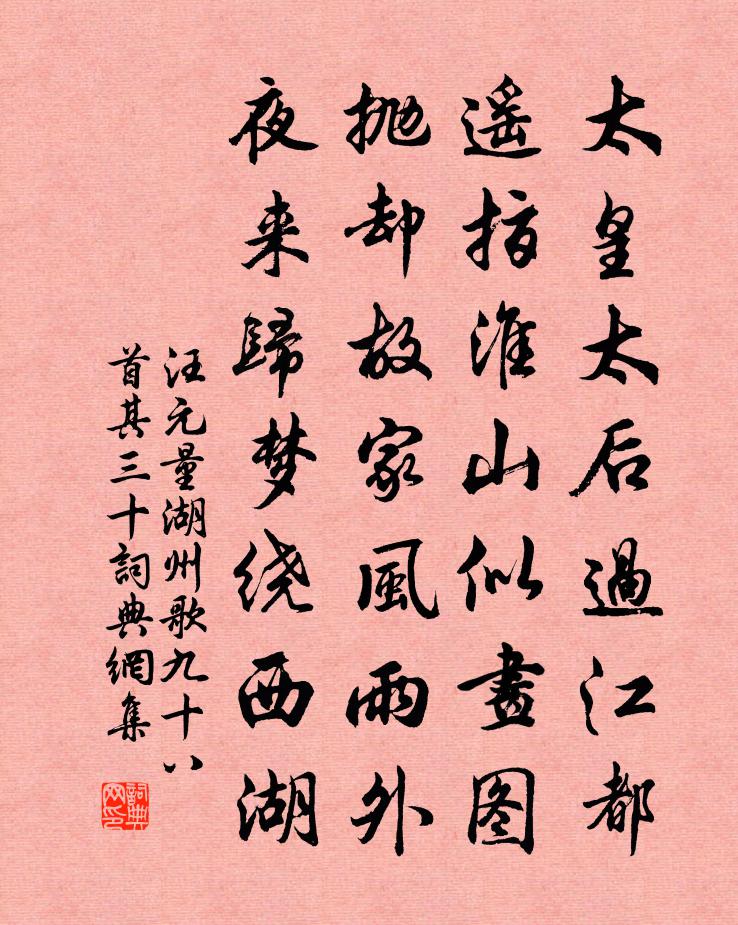 太皇太后過江都
遥指淮山似畫图
抛却故家風雨外
夜来歸梦绕西湖
汪元量湖州歌九十八
首其三十詞典網集
詞典网印